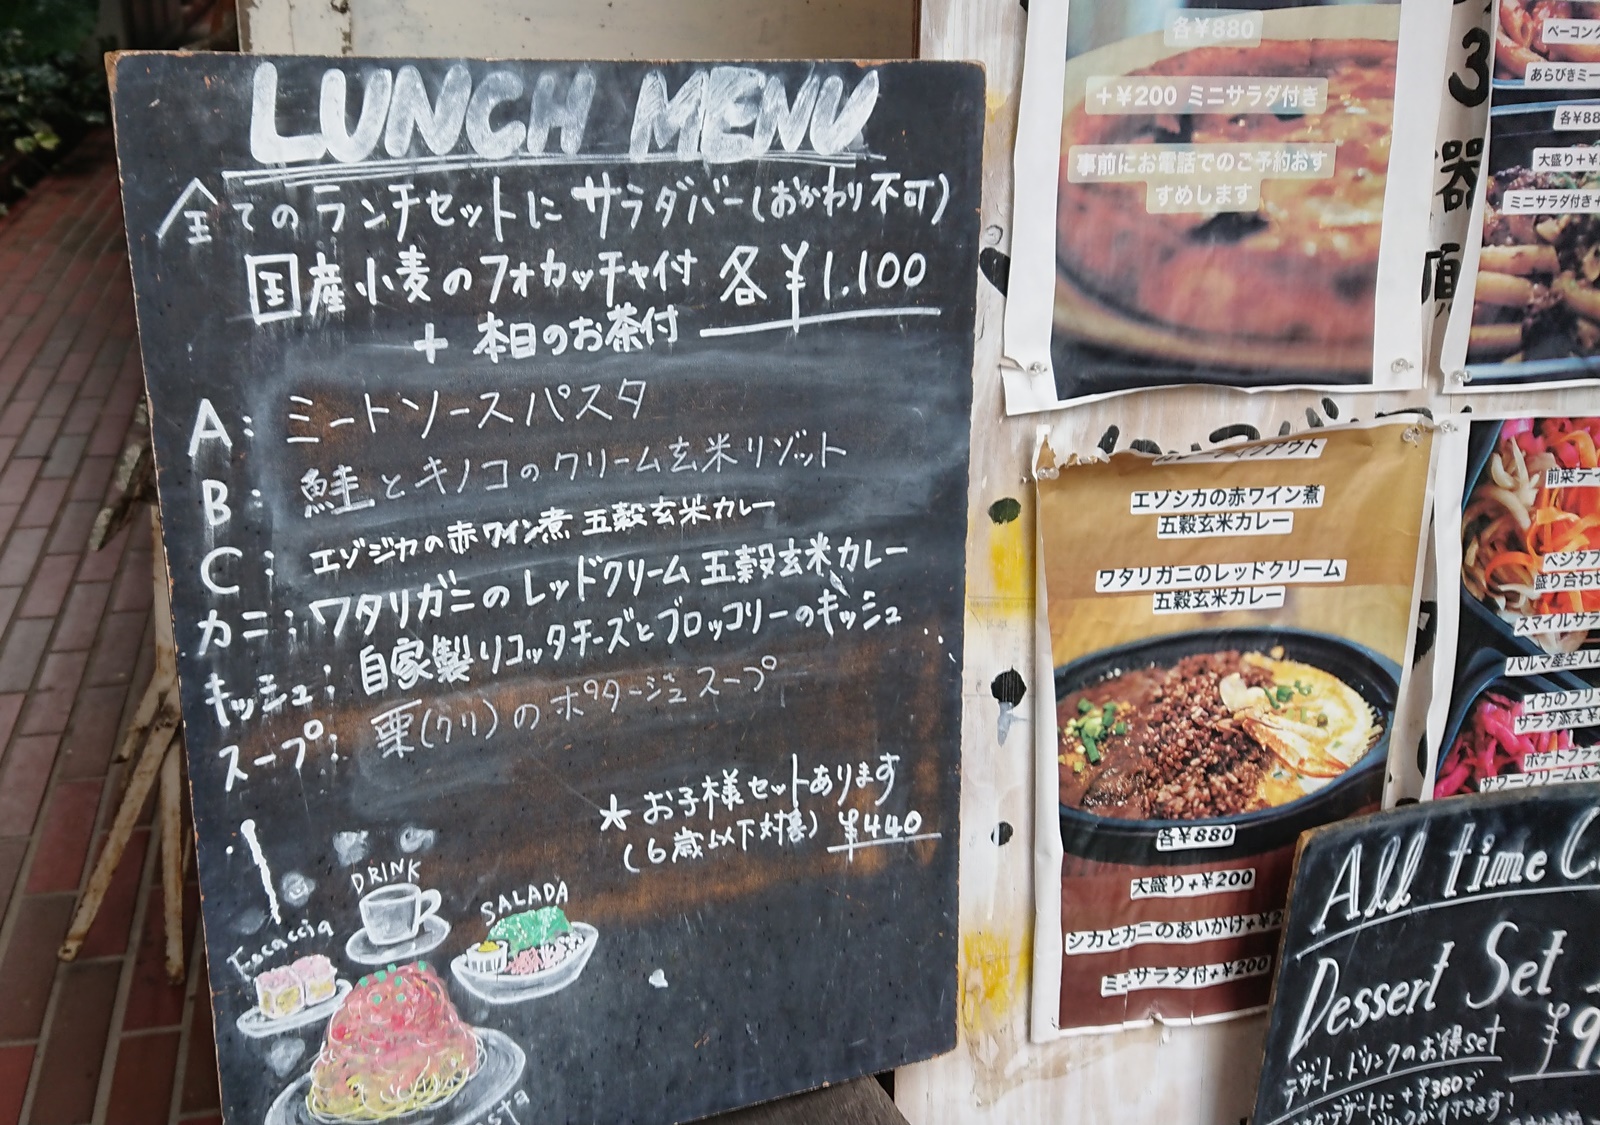 LUNCH MENU
全てのランチセットにサラダバー(おかわり不可)
国産小麦のフォカッチャ付 各¥1.100
+ 本日のお茶付
A: ミートソースパスタ
B: 鮭とキノコのクリーム玄米リゾット
C: エゾジカの赤ワイン煮 五穀玄米カレー
カニ: ワタリガニのレッドクリーム 五穀玄米カレー
キッシュ: 自家製リコッタチーズとブロッコリーのキッシュ
スープ: 栗(クリ)のポタージュスープ
★お子様セットあります
(6歳以下対象) ¥440
DRINK
SALADA
Focaccia
各¥880
+¥200 ミニサラダ付き
事前にお電話でのご予約おす
すめします
エゾシカの赤ワイン煮
五穀玄米カレー
ワタリガニのレッドクリーム
五穀玄米カレー
各¥880
大盛り+¥200
シカとカニのあいがけ+¥2
ミニサラダ付+¥200
3
器
ベーコン
あらびきミー
各¥88
大盛り+¥
ミニサラダ付き+
前菜
ベジタブ
盛り合わせ
スマイルサラ
パルマ産生ハム
イカのフリ
サラダ添え¥
ポテトフライ
サワークリーム&ス
All time
Dessert Set
¥9
デザート・ドリンクのお得set
+¥360で